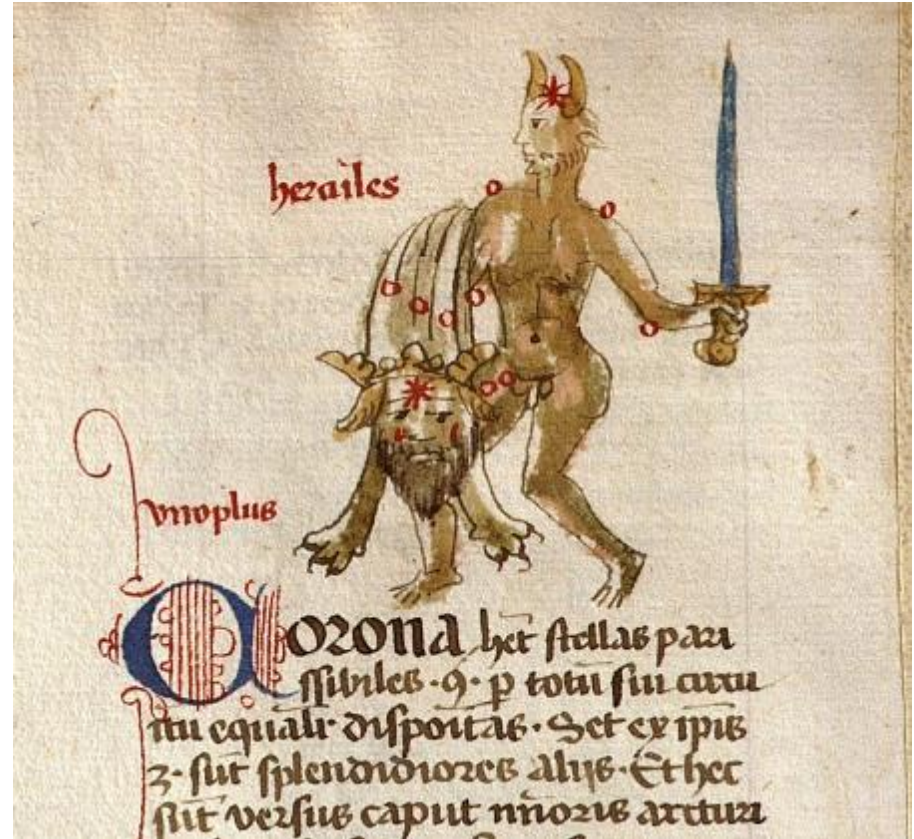 hercules
vnoplus
Corona hēt stellas pari
ssibiles · 9 · p totū sui circu
itu equalr disposītas · Set ex ipis
3 · sūt splendidiores alijs · Et hec
sūt versus caput mīoris arcturi